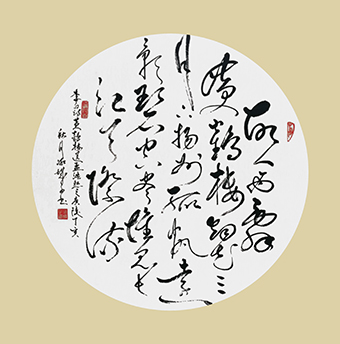 故人西辞
黄鶴樓烟花三
月下揚州孤帆遠
影碧空尽惟見長
江天際流
李白詩黄鶴樓送孟浩然之廣陵丁亥
秋月